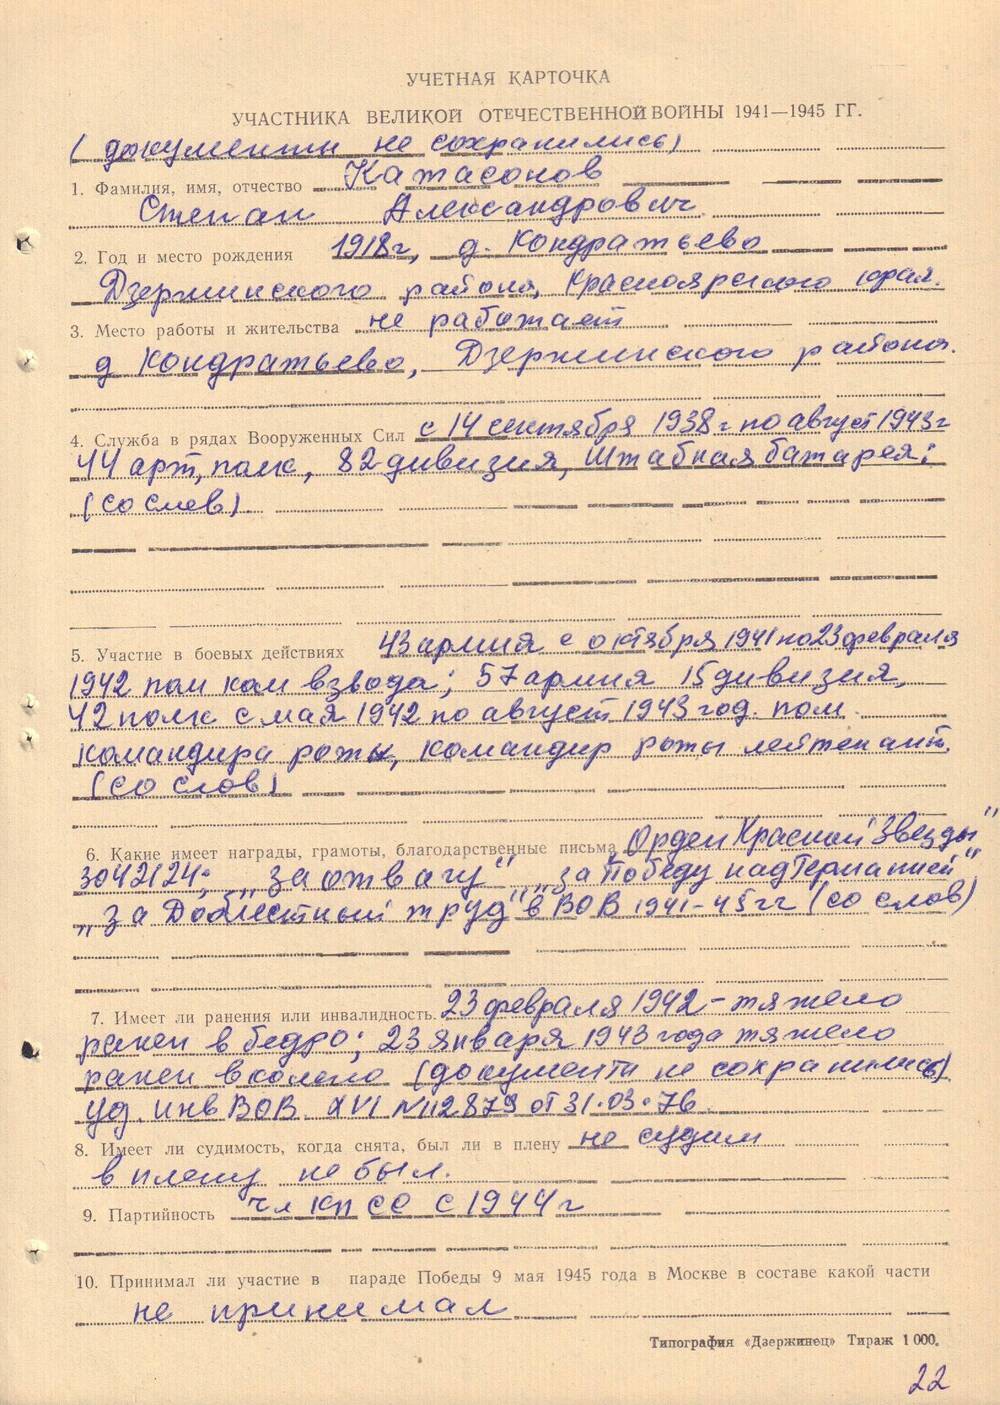 УЧЕТНАЯ КАРТОЧКА
УЧАСТНИКА ВЕЛИКОЙ ОТЕЧЕСТВЕННОЙ ВОЙНЫ 1941—1945 ГГ.
(документы не сохранились)
1. Фамилия, имя, отчество Катасонов
Степан Александрович
2. Год и место рождения 1918 г, д. Кондратьево
Дзержинского района, Красноярского края.
3. Место работы и жительства не работает
д Кондратьево, Дзержинского района.
4. Служба в рядах Вооруженных Сил с 14 сентября 1938 г по август 1943 г
44 арт, полк, 82 дивизия, Штабная батарея;
(со слов)
5. Участие в боевых действиях 43 армия с октября 1941 по 23 февраля
1942 пом ком взвода; 57 армия 15 дивизия,
42 полк с мая 1942 по август 1943 год. пом.
командира роты, командир роты лейтенант.
(со слов)
6. Какие имеет награды, грамоты, благодарственные письма Орден Красной Звезды"
3042124; „за отвагу" „за Победу над Германией"
„за Доблестный труд" в ВОВ 1941-45 гг (со слов)
7. Имеет ли ранения или инвалидность. 23 февраля 1942 - тяжело
ранен в бедро; 23 января 1943 года тяжело
ранен в колено (документы не сохранились)
уд. инв ВОВ XVI № 112879 от 31.03.76.
8. Имеет ли судимость, когда снята, был ли в плену не судим
в плену не был.
9. Партийность чл КПСС с 1944 г
10. Принимал ли участие в параде Победы 9 мая 1945 года в Москве в составе какой части
не принимал
Типография «Дзержинец» Тираж 1 000.
22